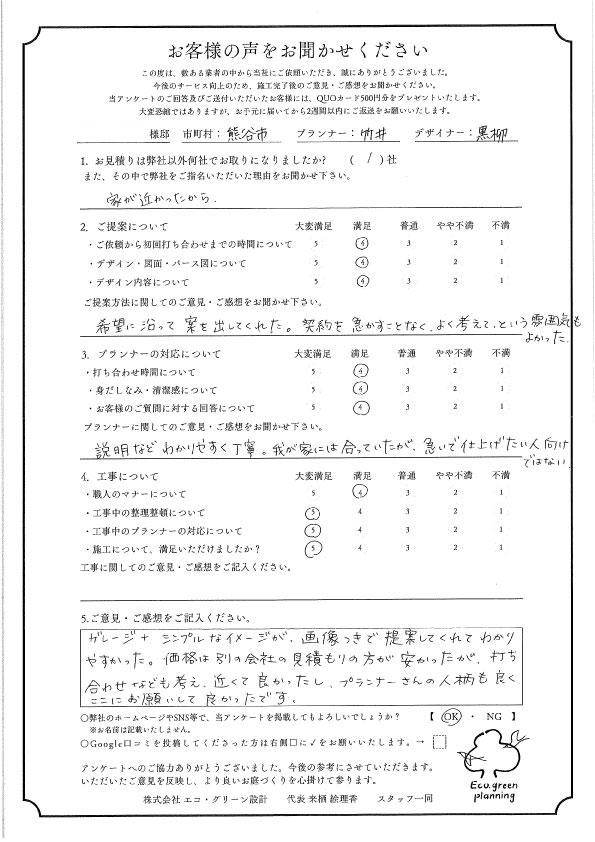 お客様の声をお聞かせください
この度は、数ある業者の中から当社にご依頼いただき、誠にありがとうございました。
今後のサービス向上のため、施工完了後のご意見・ご感想をお聞かせください。
当アンケートのご回答及びご送付いただいたお客様には、QUOカード500円分をプレゼントいたします。
大変恐縮ではありますが、お手元に届いてから2週間以内にご返送をお願いいたします。
様邸 市町村：熊谷市 プランナー：竹井 デザイナー：黒柳
1. お見積りは弊社以外何社でお取りになりましたか? ( / ) 社
また、その中で弊社をご指名いただいた理由をお聞かせ下さい。
家が近かったから.
2. ご提案について 大変満足 満足 普通 やや不満 不満
・ご依頼から初回打ち合わせまでの時間について 5 4 3 2 1
・デザイン・図面・パース図について 5 4 3 2 1
・デザイン内容について 5 4 3 2 1
ご提案方法に関してのご意見・ご感想をお聞かせ下さい。
希望に沿って案を出してくれた。契約を急かすことなく、よく考えて、という雰囲気も
よかった.
3. プランナーの対応について 大変満足 満足 普通 やや不満 不満
・打ち合わせ時間について 5 4 3 2 1
・身だしなみ・清潔感について 5 4 3 2 1
・お客様のご質問に対する回答について 5 4 3 2 1
プランナーに関してのご意見・ご感想をお聞かせ下さい。
説明などわかりやすく丁寧。我が家には合っていたが、急いで仕上げたい人向け
ではない.
4. 工事について 大変満足 満足 普通 やや不満 不満
・職人のマナーについて 5 4 3 2 1
・工事中の整理整頓について 5 4 3 2 1
・工事中のプランナーの対応について 5 4 3 2 1
・施工について、満足いただけましたか? 5 4 3 2 1
工事に関してのご意見・ご感想をご記入ください。
5.ご意見・ご感想をご記入ください。
ガレージ+シンプルなイメージが、画像つきで提案してくれてわかり
やすかった。価格は別の会社の見積もりの方が安かったが、打ち
合わせなども考え、近くて良かったし、プランナーさんの人柄も良く
ここにお願いして良かったです。
○弊社のホームページやSNS等で、当アンケートを掲載してもよろしいでしょうか? 【 OK ・ NG 】
※お名前は記載いたしません。
○Google口コミを投稿してくださった方は右側□に✓をお願いいたします。→ □
アンケートへのご協力ありがとうございました。今後の参考にさせていただきます。
いただいたご意見を反映し、より良いお庭づくりを心掛けて参ります。
Eco.green
planning
株式会社 エコ・グリーン設計 代表 来栖 絵理香 スタッフ一同